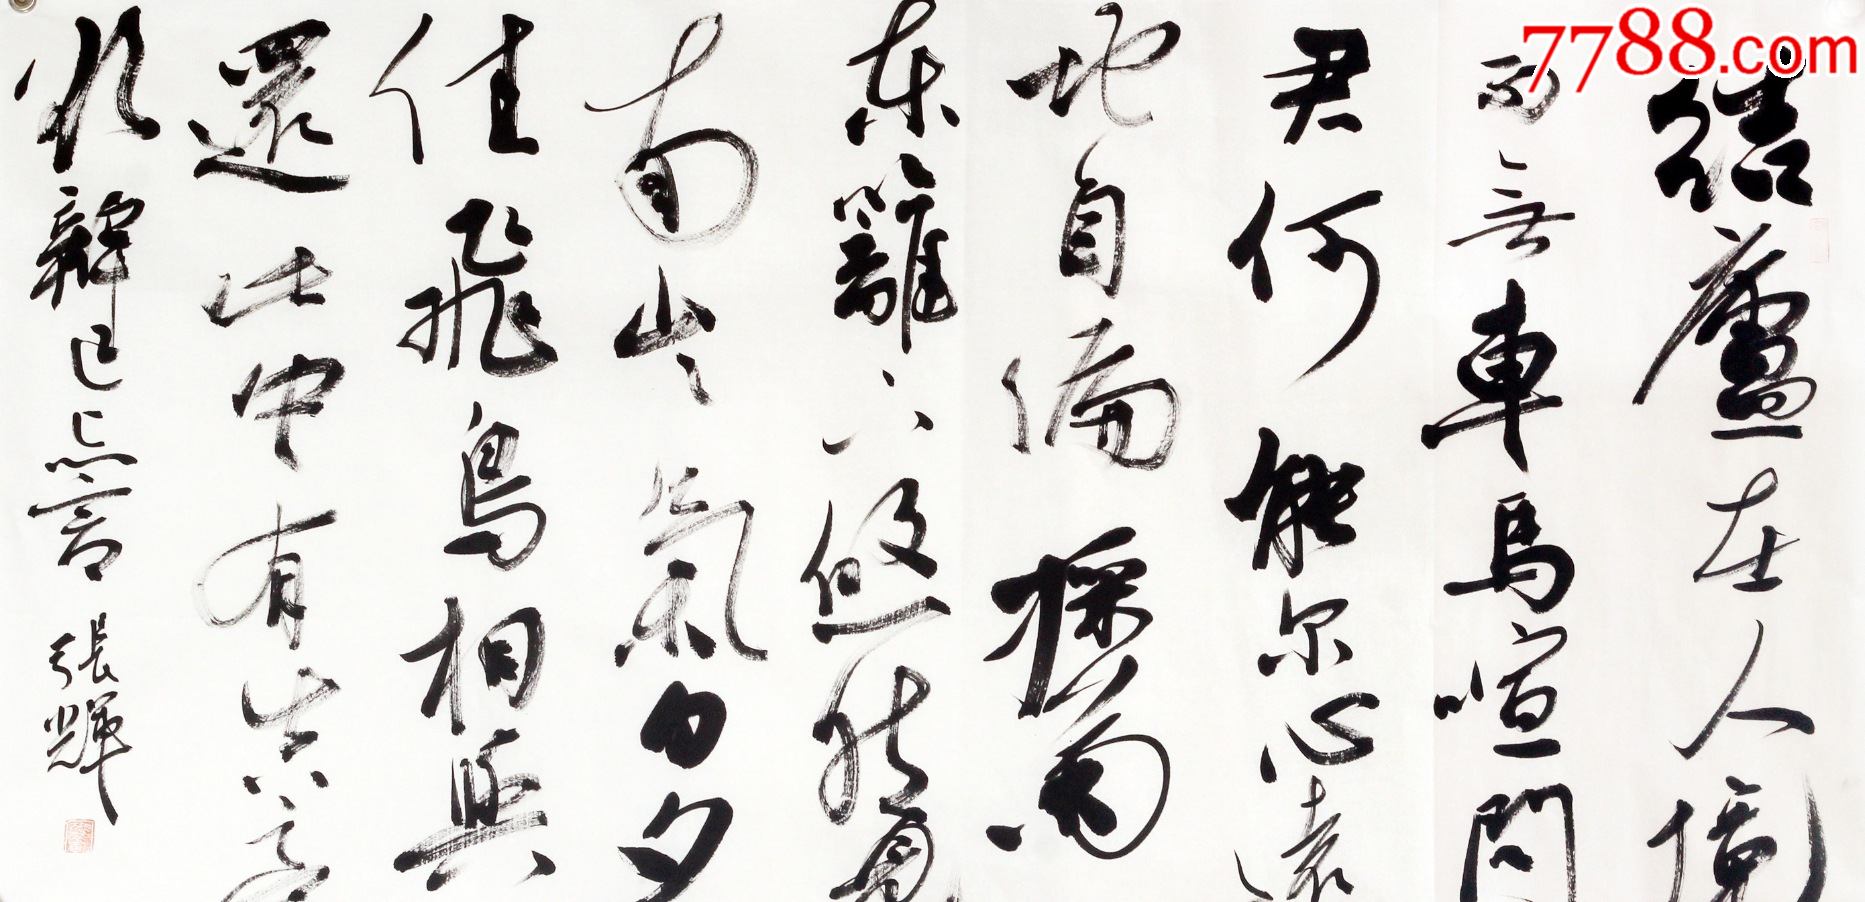 7788.com
結廬在人境
而無車馬喧問
君何能尔心遠
地自偏採菊
东籬下悠然見
南山々氣日夕
佳飛鳥相與
還此中有真意
欲辯已忘言 張輝